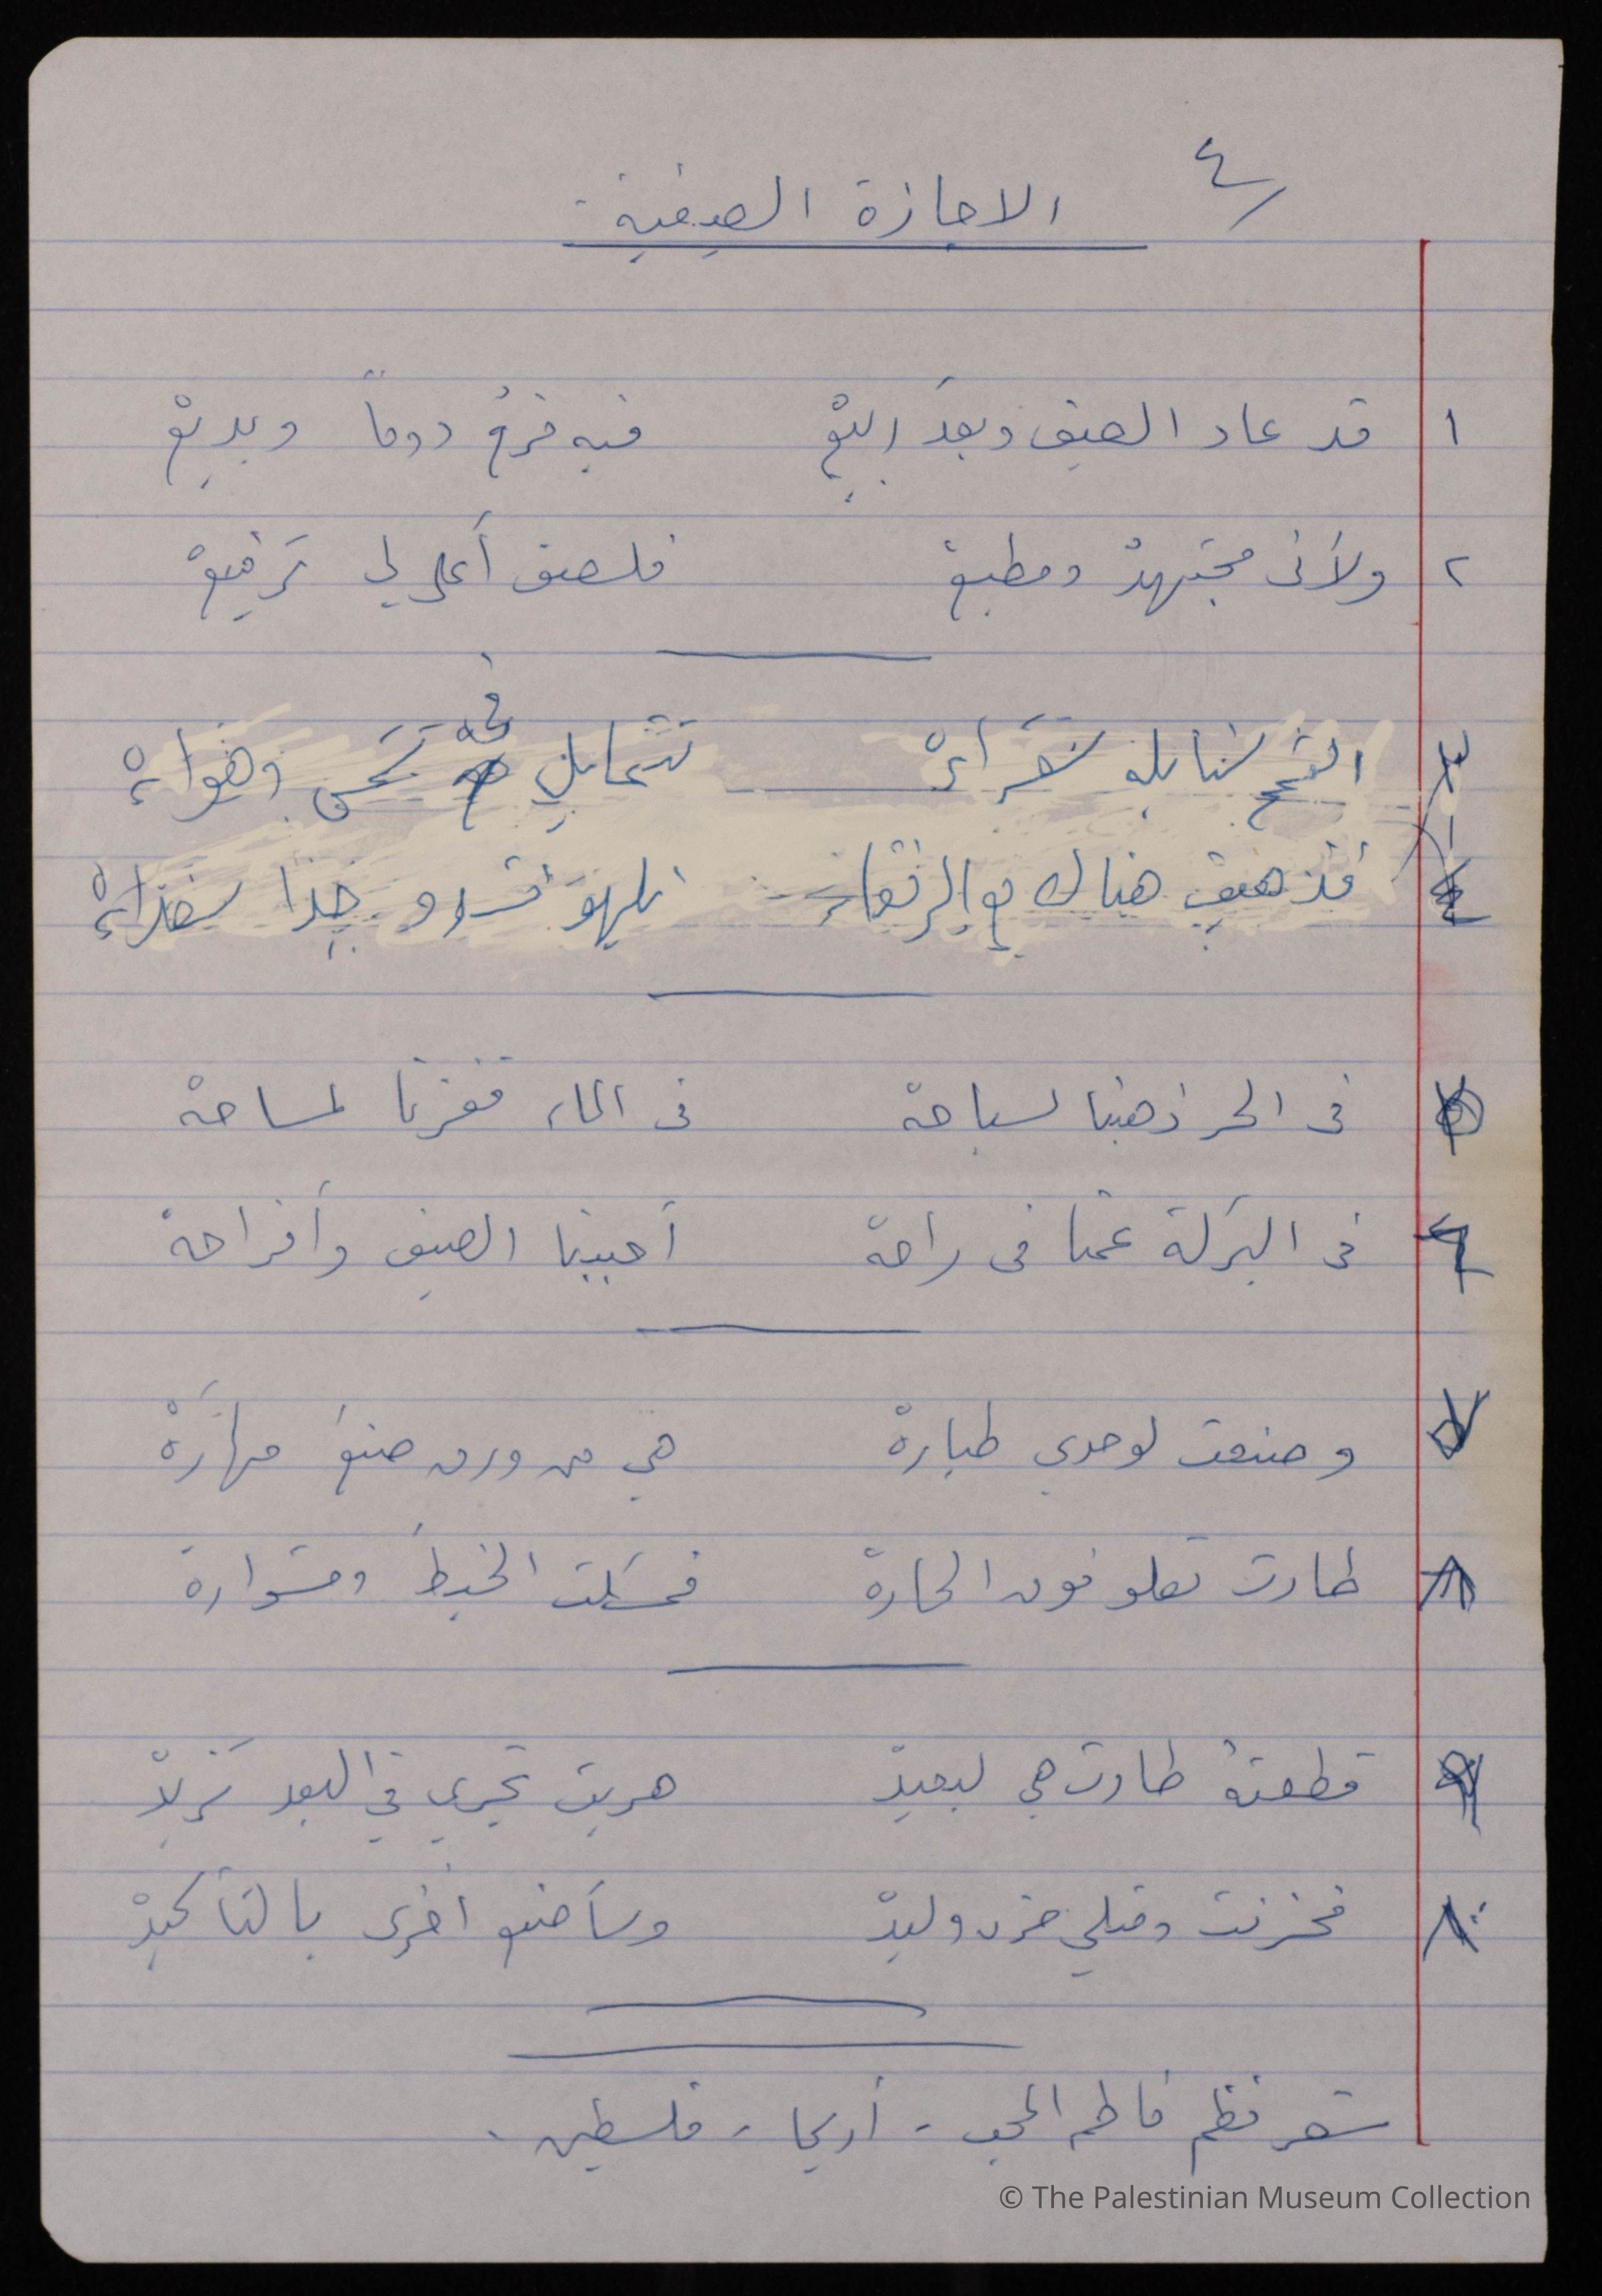 ٤
الاجازة الصيفية
١ قد عاد الصيف وبعدَ ربيعْ فيه فرحٌ دوماً وبديعْ
٢ ولأنى مجتهدٌ ومطيعْ فلصف أعلى لي ترفيعْ
٣ القمح سنابله شقراءْ تتمايل في شمس وهواءْ
٤ فذهبت هناك مع الرفقاء نلهو نشدو
فى الحر ذهبنا لسباحة فى الماء قفزنا لمساحة
فى البركة عمنا فى راحة أحببنا الصيف وأفراحه
وصنعت لوحدي طيارةْ هي من ورق صنعَ مهارَةْ
٨ طارت تعلو فوق الحارة فمسكت الخيطَ ومشواره
٩ قطعتهُ طارت هي لبعيدْ هربت تجري في البعد تزيدْ
فحزنت وقبلي حزن وليدْ وسأصنع أخرى بالتأكيدْ
شعر نظم فاطمة المحب - أريحا - فلسطين .
© The Palestinian Museum Collection